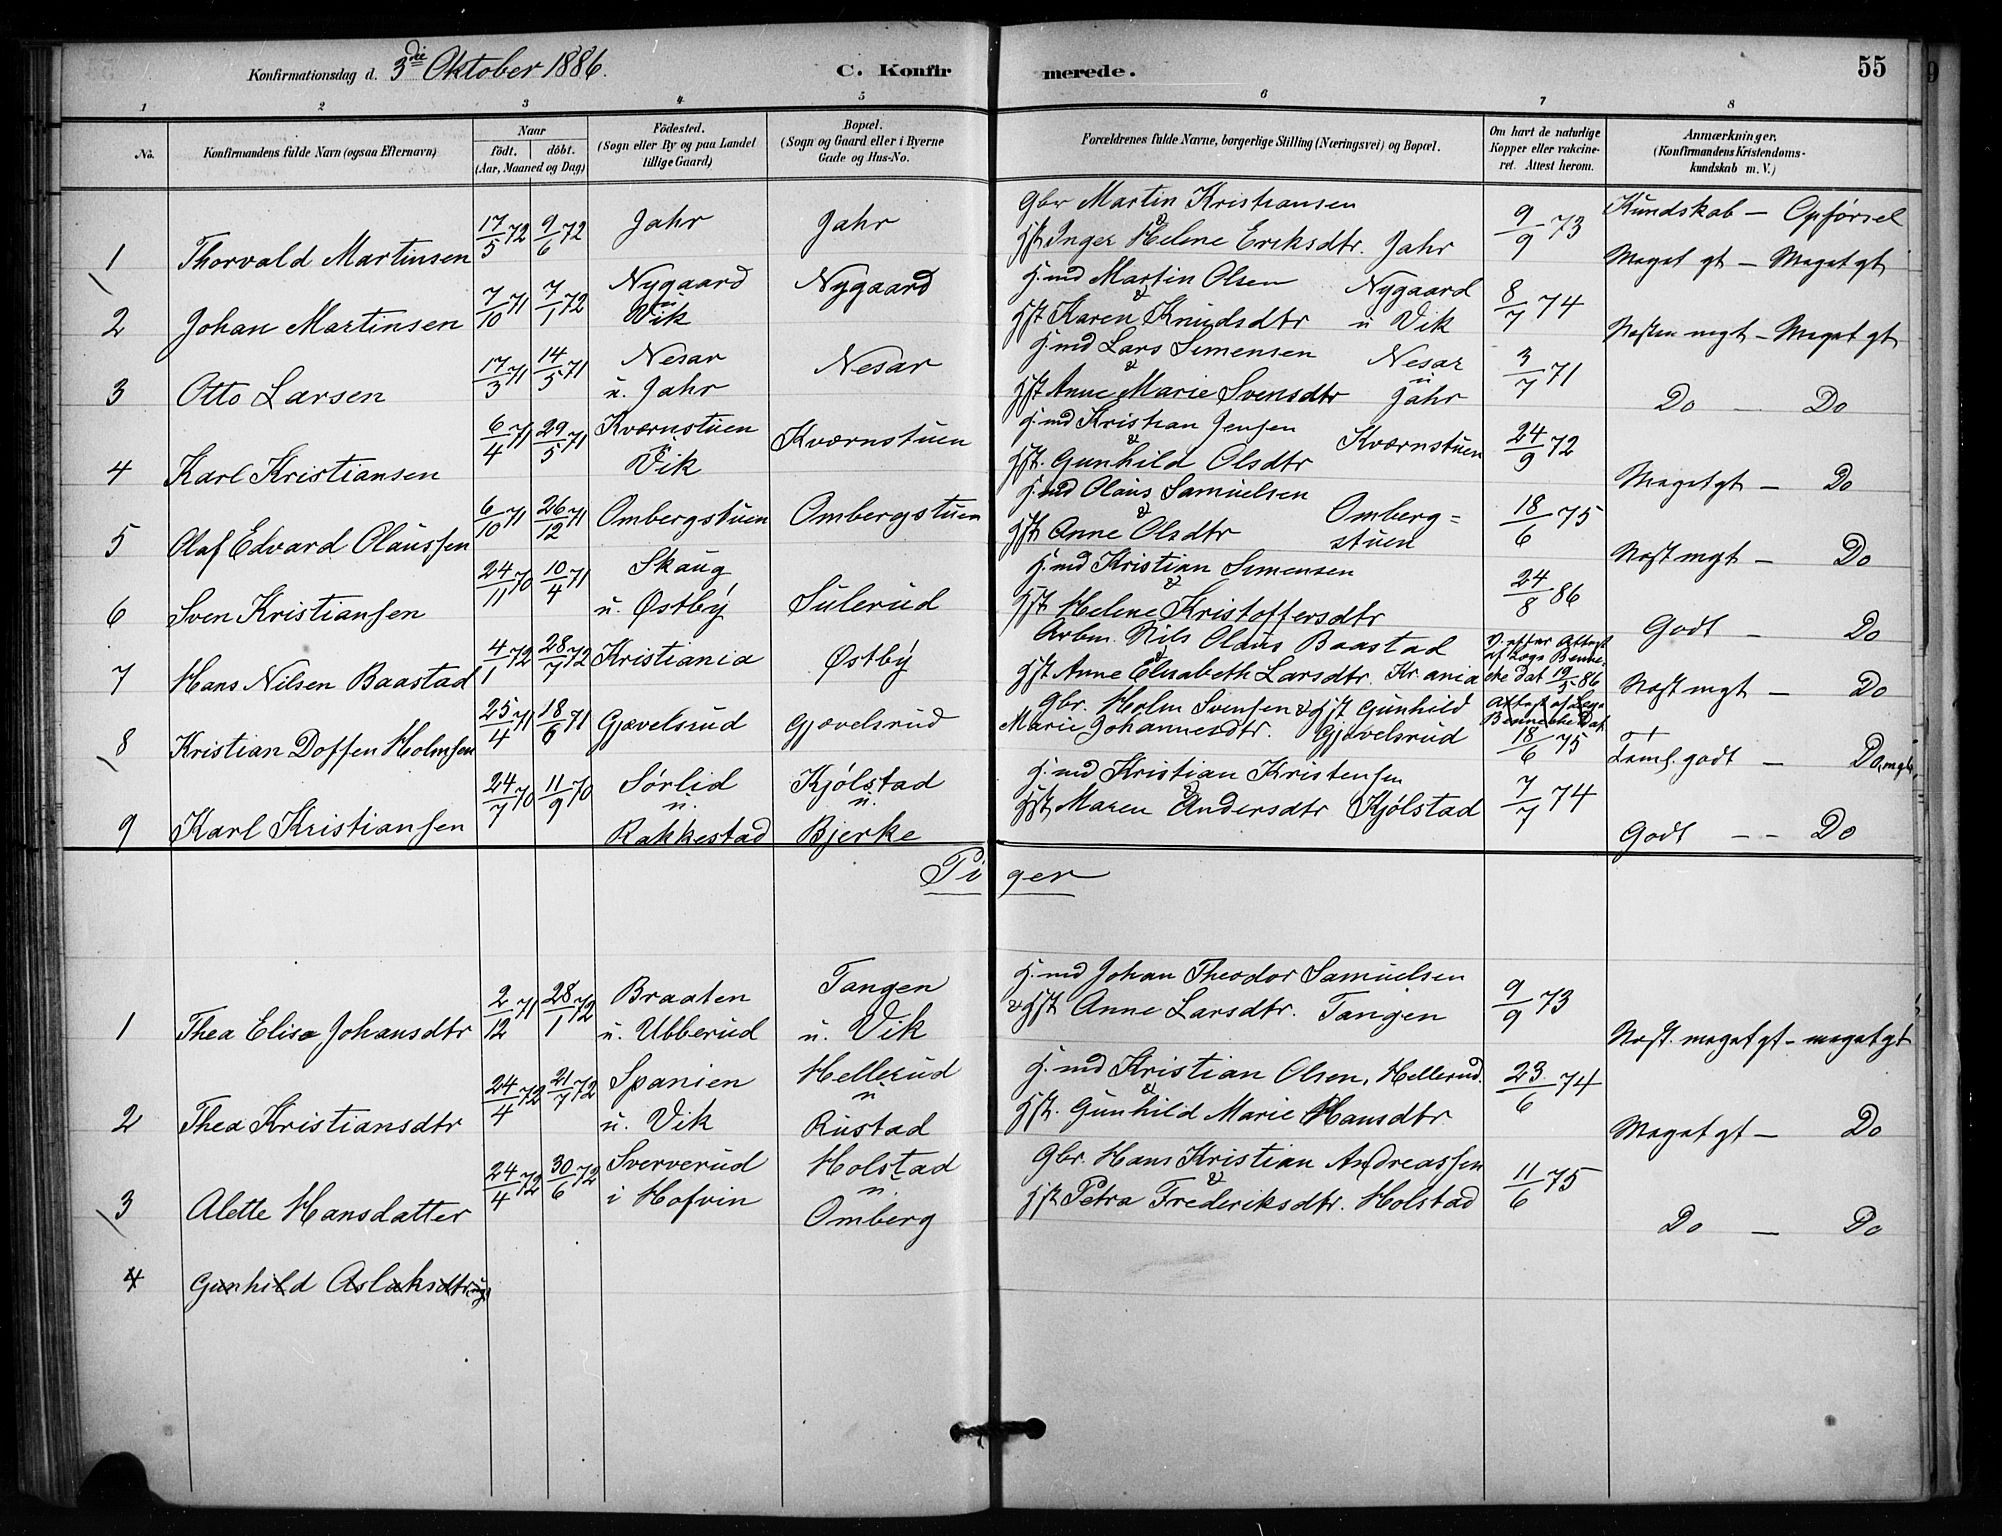 Konfirmationsdag d. 3die Oktober 1886.
C. Konfirmerede.
55
1 2 3 4 5 6 7 8
No.
Konfirmandens fulde Navn (ogsaa Efternavn)
Naar
födt. döbt.
(Aar, Maaned og Dag)
Födested.
(Sogn eller By og paa Landet
tillige Gaard)
Bopæl.
(Sogn og Gaard eller i Byerne
Gade og Hus-No.
Forældrenes fulde Navne, borgerlige Stilling (Næringsvei) og Bopæl.
Om havt de naturlige
Kopper eller vakcine-
ret. Attest herom.
Anmærkninger,
(Konfirmandens Kristendoms-
kundskab m. V.)
Kundskab — Opførsel
1 Thorvald Martinsen 17/5 72 9/6 72 Jahr Jahr
Gbr Martin Kristiansen
&
Hst Inger Helene Eriksdtr. Jahr
9/9 73
Meget gt — Meget gt
2 Johan Martinsen 7/10 71 7/1 72 Nygaard
u
Vik
Nygaard
H.md Martin Olsen Nygaard
&
Hst Karen Knudsdtr u Vik
8/7 74
Næsten mgt — Meget gt
3 Otto Larsen 17/3 71 14/5 71 Nesar
u. Jahr
Nesar
H.md Lars Simensen Nesar
& u
Hst Anne Marie Svensdtr Jahr
3/7 71
Do — Do
4 Karl Kristiansen 6/4 71 29/5 71 Kværnstuen
u
Vik
Kværnstuen
H.md Kristian Jensen Kværnstuen
&
Hst. Gunhild Olsdtr
24/9 72
Meget gt — Do
5 Olaf Edvard Olaussen 6/10 71 26/12 71 Ombergstuen Ombergstuen
H.md Olaus Samuelsen Omberg=
&
Hst Anne Olsdtr stuen
18/6 75
Næst mgt — Do
6 Sven Kristiansen 24/11 70 10/4 71 Skaug
u. Østby
Sulerud
H.md Kristian Simensen
&
Hst Helene Kristoffersdtr
24/8 86
Godt — Do
7 Hans Nilsen Baastad 4/1 72 28/7 72 Kristiania Østby
Arbm. Nils Olaus Baastad
&
Hst Anne Elisabeth Larsdtr. Kr.ania
V. efter Attest
af Læge Benne-
che dat 19/5 86
Næst mgt — Do
8 Kristian Doffen Holmsen 25/4 71 18/6 71 Gjævelsrud Gjævelsrud
Gbr. Holm Svensen & Hst Gunhild
Marie Johannesdtr. Gjævelsrud
Attest af Læge
Benneche Dat
18/6 75
Teml. godt — Do, mgt.
9 Karl Kristiansen 24/7 70 11/9 70 Sørlid
u.
Rakkestad
Kjølstad
u.
Bjerke
H.md Kristian Kristensen
&
Hst Maren Andersdtr Kjølstad
7/7 74
Godt — — Do
Piger
1 Thea Elise Johansdtr 2/12 71 28/1 72 Braaten
u. Ubberud
Tangen
u. Vik
H.md Johan Theodor Samuelsen
& Hst Anne Larsdtr. Tangen
9/9 73
Næst. meget gt — meget gt
2 Thea Kristiansdtr 24/4 72 21/7 72 Spanien
u. Vik
Hellerud
u
Rustad
H.md Kristian Olsen, Hellerud.
&
Hst. Gunhild Marie Hansdtr
23/6 74
Meget gt — Do
3 Alette Hansdatter 24/4 72 30/6 72 Sververud
i Hofvin
Holstad
u.
Omberg
Gbr. Hans Kristian Andreassen
&
Hst Petra Frederiksdtr. Holstad
11/6 75
Do — Do
4 Gunhild Aslaksdtr